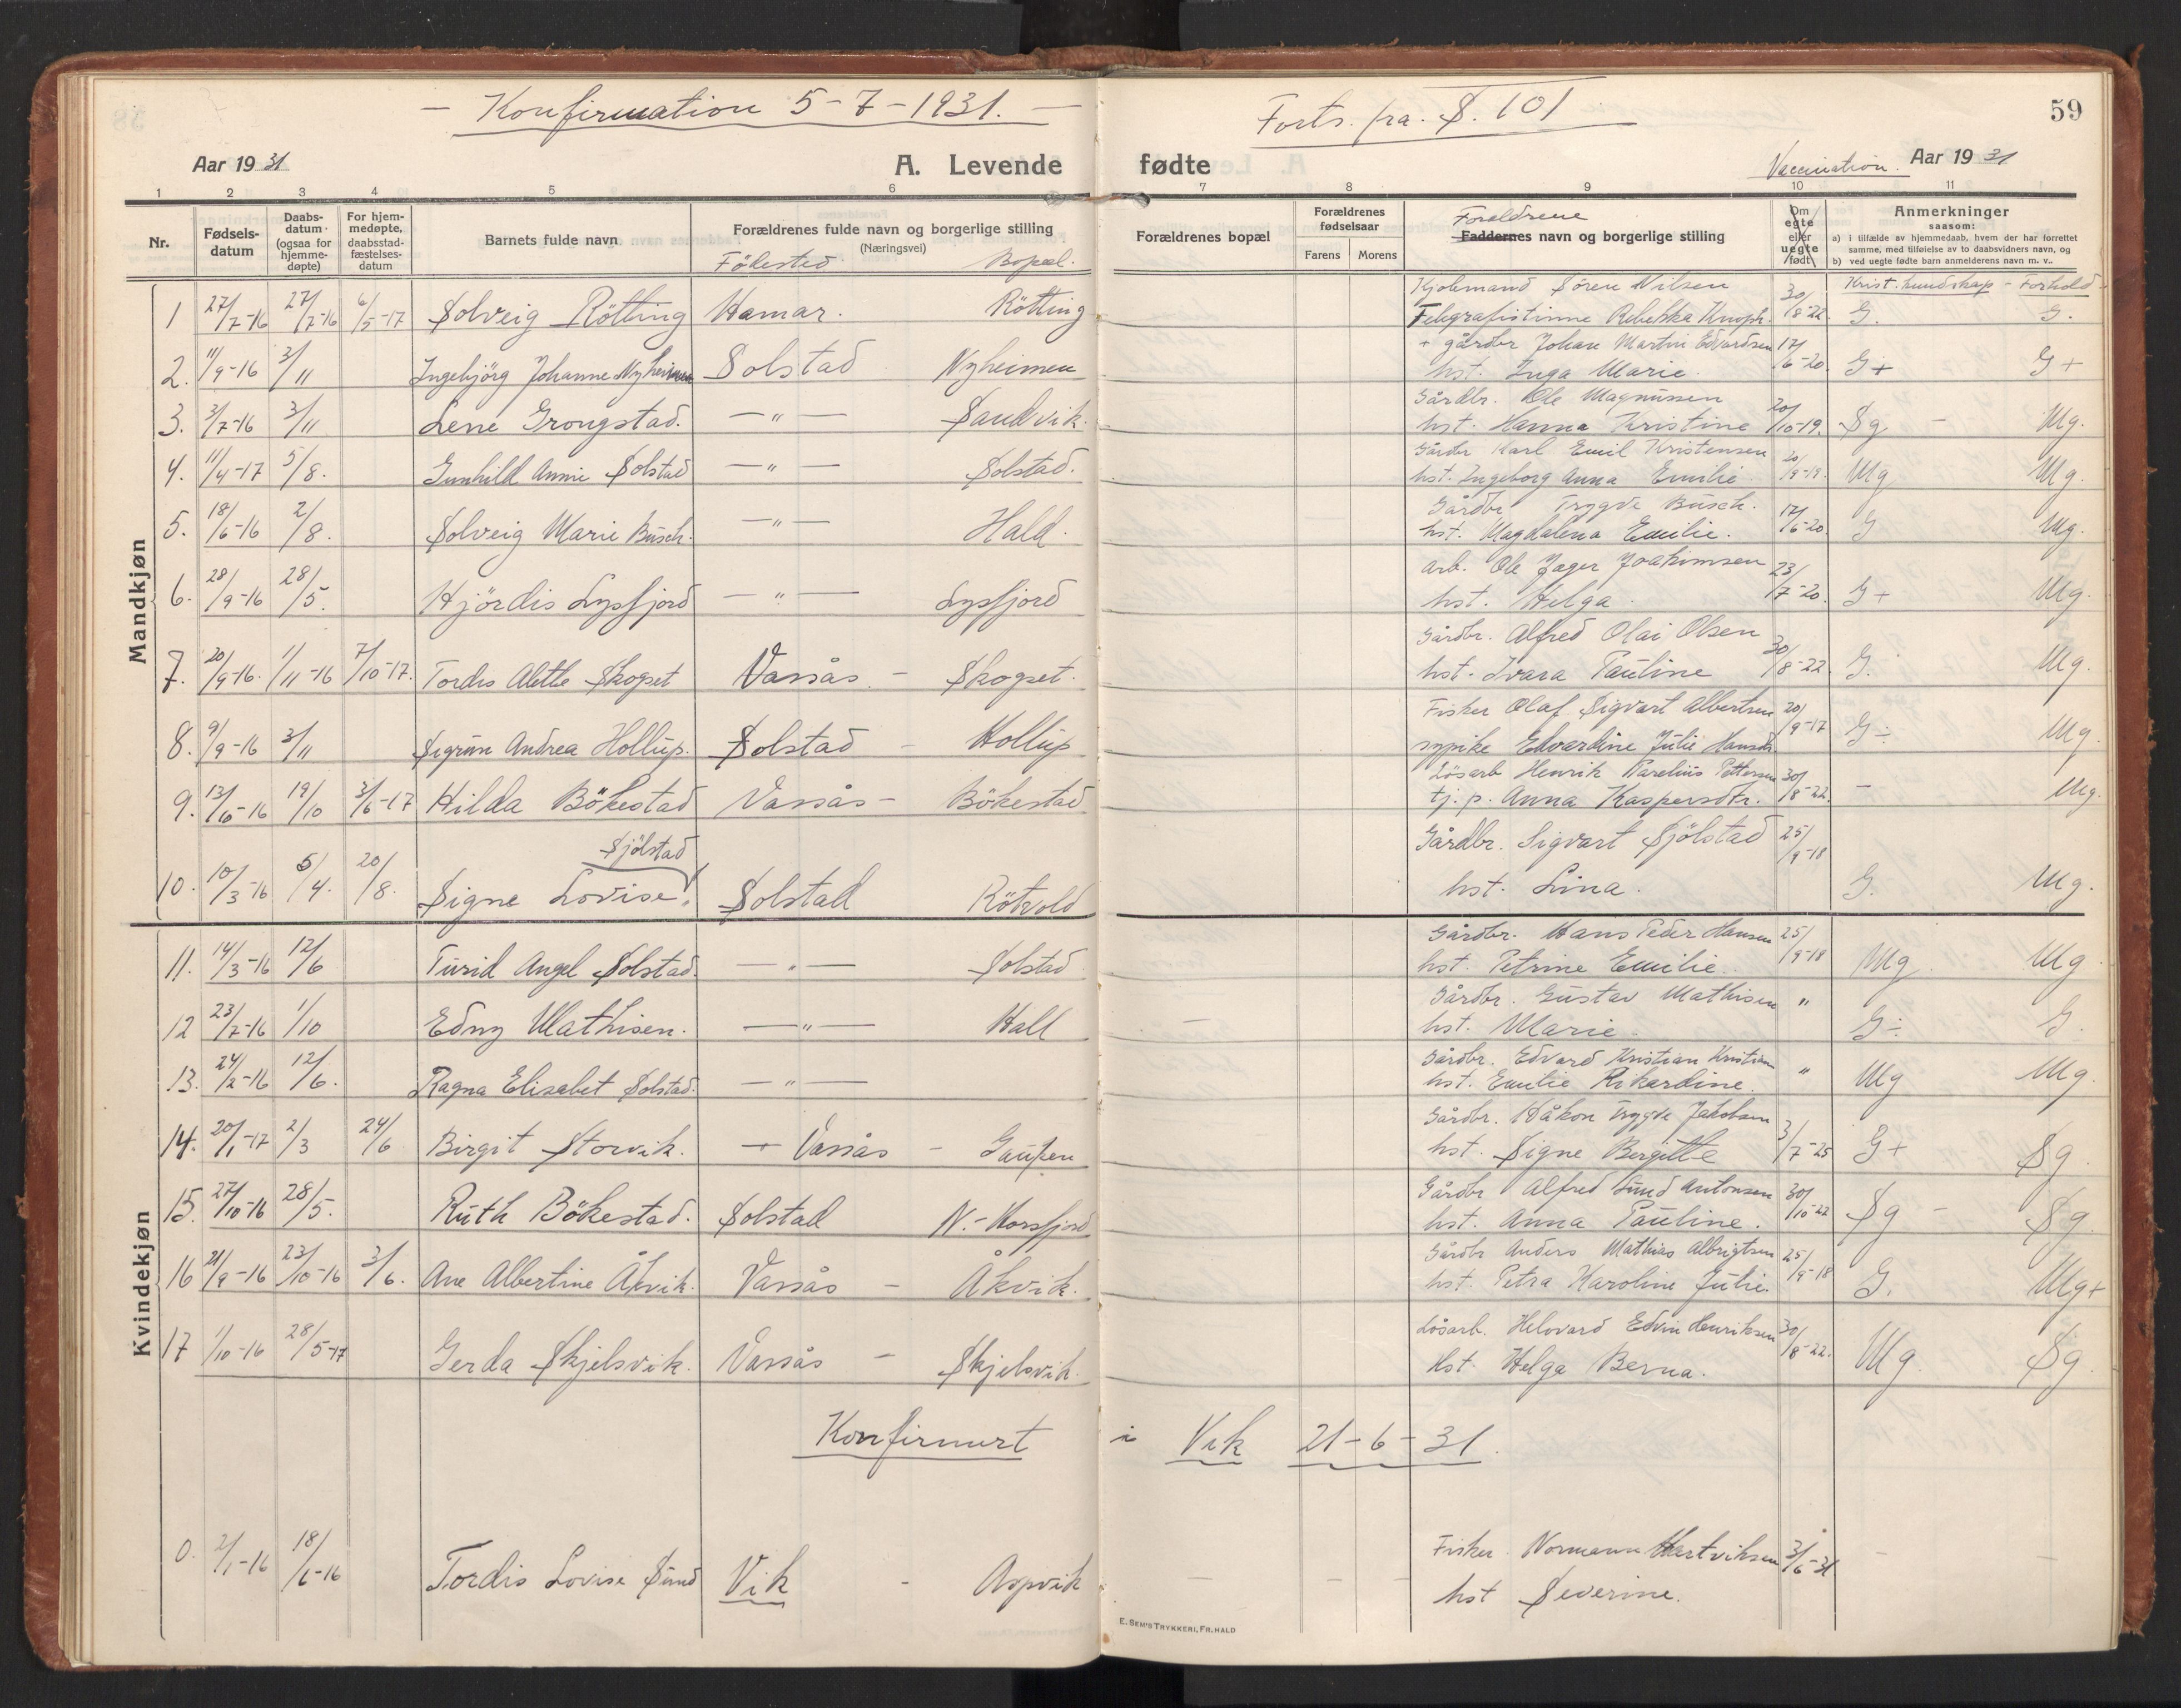 — Konfirmation 5-7-1931. —
Forts. fra. S. 101
59
Aar 1931
A. Levende fødte
Vaccination.
Aar 1931
1 2 3 4 5 6 7 8 9 10 11
Nr.
Fødsels-datum
Daabs-datum (ogsaa for hjemme-døpte)
For hjem-medøpte, daabsstad-fæstelses-datum
Barnets fulde navn
Forældrenes fulde navn og borgerlige stilling
(Næringsvei)
Födested Bopæl.
Forældrenes bopæl
Forældrenes fødselsaar
Farens Morens
Foreldrene
Faddernes navn og borgerlige stilling
Om egte eller uegte født
Anmerkninger
saasom:
a) i tilfælde av hjemmedaab, hvem der har forrettet samme, med tilføielse av to daabsvidners navn, og
b) ved uegte fødte barn anmelderens navn m. v..
Krist. kundskap - Forhold
Mandkjøn
1 27/7-16 27/7-16 6/5-17 Solveig Rötting Hamar. Rötting Kjölemand Sören Nilsen 30/8-22 G. G.
Telegrafistinne Rebekka Knoph.
2. 11/9-16 3/11 Ingebjörg Johanne Nyheimen Solstad Nyheimen + gårdbr Johan Martin Edvardsen 17/6-20 G+ G+
hst. Inga Marie.
3. 3/7-16 3/11 Lene Grongstad. —"— Sandvik. Gårdbr. Ole Magnussen 20/10-19. Sg - Mg.
hst. Hanna Kristine
4. 11/4-17 5/8. Gunhild Annie Solstad —"— Solstad. Gårdbr Karl Emil Kristensen 20/9-19. Mg Mg.
hst. Ingeborg Anna Emilie
5. 18/6-16 2/8. Solveig Marie Busch. —"— Hald. Gårdbr Trygve Busch. 17/6-20 G Mg.
hst. Magdalena Emilie.
6. 28/9-16 28/5. Hjördis Lysfjord —"— Lysfjord arb. Ole Jager Joakimsen 23/7-20. G+ Mg.
hst. Helga.
7. 20/9-16. 1/11-16 7/10-17. Tordis Alette Skogset Vassås. - Skogset. Gårdbr. Alfred Olai Olsen 30/8-22 G. Mg.
hst. Ivara Pauline
8. 9/9-16 3/11 Sigrun Andrea Hollup. Solstad - Hollup Fisker Olaf Sigvart Albertsen 20/9-17 G÷ Mg.
sypike Edvardine Julie Hansdtr
9. 13/6-16 19/10 3/6-17 Hilda Bökestad Vassås - Bökestad Lösarb Henrik Parelius Pettersen 30/8-22. - Mg.
tj. p. Anna Kaspersdtr.
Sjölstad
10. 10/3-16 5/4. 20/8. Signe Lovise! Solstad Rötvold Gårdbr. Sigvart Sjölstad 25/9-18 G. Mg.
hst. Lina.
Kvindekjøn
11. 14/3-16 12/6 Turid Angel Solstad. —"— Solstad Gårdbr. Hans Peder Hansen 25/9-18 Mg. Mg.
hst. Petrine Emilie.
12 23/7-16 1/10 Edny Mathisen. —"— Hall - Gårdbr. Gustav Mathisen " G÷ G.
hst. Marie
13. 24/2-16 12/6. Ragna Elisabet Solstad. —"— Gårdbr. Edvard Kristian Kristian " Mg Mg.
hst. Emilie Rikardine.
14. 20/1-17 2/3 24/6 Birgit Storvik. + Vassås - Gaupen Gårdbr. Håkon Trygve Jakobsen 3/7-25 G+ Sg.
hst. Signe Bergitte
15. 27/10-16 28/5. Ruth Bökestad. Solstad N.-Horsfjord Gårdbr Alfred Lund Antonsen 30/10-22 Sg - Sg.
hst. Anna Pauline.
16 21/9-16 23/10-16 3/6. Ane Albertine Åkvik. Vassås - Åkvik. Gårdbr Anders Mathias Albrigtsen 25/9-18 G. Mg+
hst. Petra Karoline Julie.
17 1/10-16 28/5-17 Gerda Skjelsvik. Vassås - Skjelsvik. Lösarb. Helovard Edvin Henriksen 30/8-22. Mg. Sg.
Hst. Helga Berna.
Konfirmert i Vik 21-6-31.
0. 2/1-16 18/6-16 Tordis Lovise Sund Vik - Aspvik - - - Fisker Normann Hartviksen 3/6-31 - -
hst Severine.
E. SEM'S TRYKKERI, FR.HALD